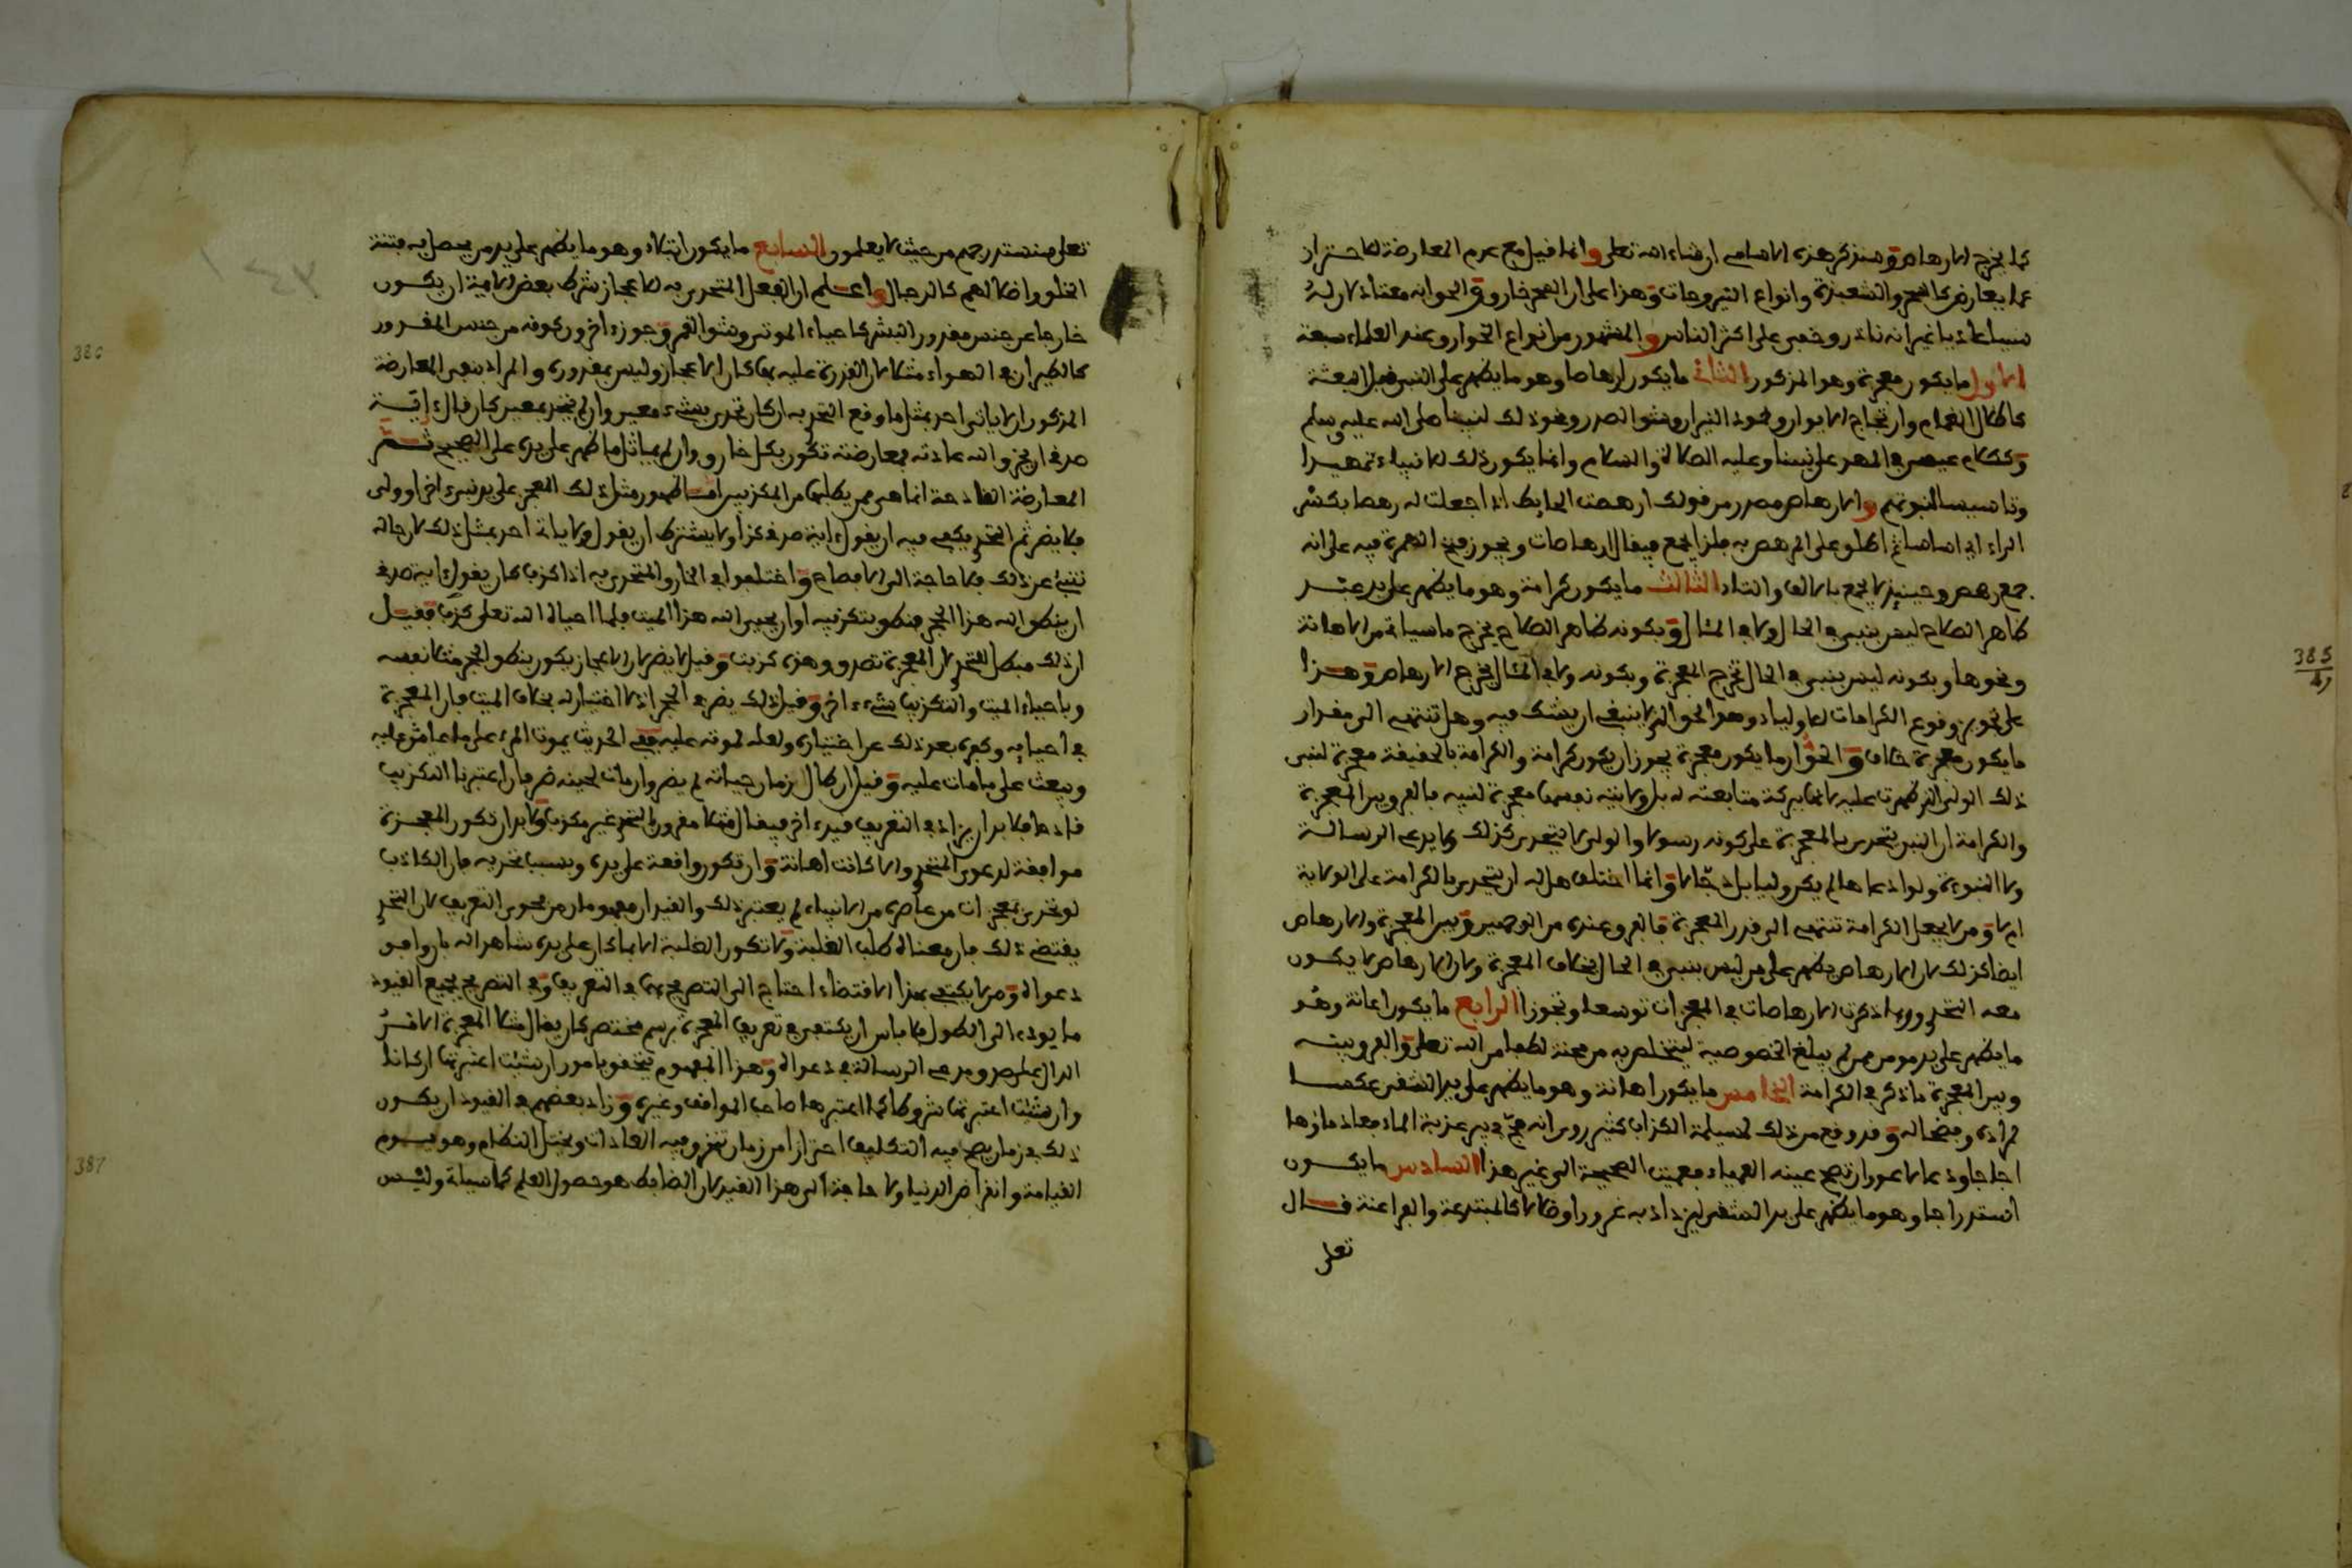 كما يخرج الارهاص وسنذكر هذه الاسامي ان شاء الله تعلى وانما قيل مع عدم المعارضة للاحتراز
عما يعارض كالسحر والشعبذة وانواع النيروجات وهذا على ان السحر خارق والحق انه معتاد لان له
سببا عاديا غير انه نادر وخفي على اكثر الناس والمشهور من انواع الخوارق عند العلماء سبعة
الاول ما يكون معجزة وهو المذكور الثاني ما يكون ارهاصا وهو ما يظهر على النبي قبل البعثة
كاظلال الغمام وارتجاج الايوان وخمود النيران وشق الصدر ونحو ذلك لنبينا صلى الله عليه وسلم
وككلام عيسى في المهد على نبينا وعليه الصلاة والسلام وانما يكون ذلك للانبياء تمهيدا
وتاسيسا لنبوتهم والارهاص مصدر من قولك ارهصت الحايط اذا جعلت له رهصا بكسر
الراء اي اساسا ثم اطلق على المرهص به فلذا يجمع فيقال ارهاصات ويجوز فتح الهمزة فيه على انه
جمع رهص وحينيذ لا يجمع بالالف والتاء الثالث ما يكون كرامة وهو ما يظهر على يد عبد
ظاهر الصلاح ليس بنبي في الحال ولا في المئال وبكونه ظاهر الصلاح يخرج ما سياتي من الاهانة
ونحوها وبكونه ليس بنبي في الحال تخرج المعجزة وبكونه ولا في المئال يخرج الارهاص وهذا
على تجويز وقوع الكرامات للاولياء وهو الحق الذي لا ينبغي ان يشك فيه وهل تنتهي الى مقدار
ما يكون معجزة خلاف والحق ان ما يكون معجزة يجوز ان يكون كرامة والكرامة بالحقيقة معجزة لنبي
ذلك الولي الذي ظهرت عليه لانها ببركة متابعته له بل ولايته نفسها معجزة لنبيه فالفرق بين المعجزة
والكرامة ان النبي يتحدى بالمعجزة على كونه رسولا والولي لا يتحدى كذلك ولا يدعي الرسالة
ولا النبوءة ولو ادعاها لم يكن وليا بل دجالا وانما اختلف هل له ان يتحدى بالكرامة على الولاية
ام لا ومن لا يجعل الكرامة تنتهي الى قدر المعجزة فالفرق عنده من الوجهين وبين المعجزة والارهاص
ايضا كذلك لان الارهاص يظهر على من ليس بنبي في الحال بخلاف المعجزة ولان الارهاص لا يكون
معه التحدي وربما ذكرت الارهاصات في المعجزات توسعا وتجوزا الرابع ما يكون اعانة وهو
ما يظهر على يد مومن ممن لم يبلغ الخصوصية ليتخلص به من محنة لطفا من الله تعلى والفرق بينه
وبين المعجزة ما ذكر في الكرامة الخامس ما يكون اهانة وهو ما يظهر على يد الشقي عكسا
لمراده وفضحا له وقد وقع من ذلك لمسيلمة الكذاب كثير روي انه مج في بير عذبة الماء فعاد ماؤها
اجاجا ودعا لاعور ان تصح عينه العمياء فعميت الصحيحة الى غير هذا السادس ما يكون
استدراجا وهو ما يظهر على يد الشقي ليزداد به غرورا وضلالا كالمبتدعة والفراعنة قال
تعلى
تعلى سنستدرجهم من حيث لا يعلمون السابع ما يكون ابتلاء وهو ما يظهر على يد من يحصل به فتنة
الخلق واضلالهم كالدجال واعلم ان الفعل المتحدى به للاعجاز شرط بعض الايمة ان يكون
خارجا عن جنس مقدور البشر كاحياء الموتى وشق القمر وجوز ءاخرون كونه من جنس المقدور
كالطيران في الهواء مثلا لان القدرة عليه بها كان الاعجاز وليس بمقدوره والمراد بنفي المعارضة
المذكور ان لا ياتي احد بمثل ما وقع التحدي به ان كان تحدى بشيء معين وان لم يتحد بمعين كان قال ءاية
صدقي ان يخرق الله عادته فمعارضته تكون بكل خارق وان لم يماثل ما ظهر على يده على الصحيح ثم
المعارضة القادحة انما هي ممن يطلبها من المكذبين اما ظهور مثل ذلك المعجز على يد نبيء اخر او ولي
فلا يضر ثم التحدي يكفي فيه ان يقول ءاية صدقي كذا ولا يشترط ان يقول ولا ياتي احد بمثل ذلك لان حاله
تنبئ عن ذلك فلا حاجة الى الافصاح واختلفوا في الخارق المتحدى به اذا كذب كان يقول ءاية صدقي
ان ينطق الله هذا الحجر فنطق بتكذيبه او ان يحيي الله هذا الميت فلما احياه الله تعلى كذبه فقيل
ان ذلك مبطل للتحدي لان المعجزة تصدق وهذه كذبت وقيل لا يضر لان الاعجاز يكون بنطق الحجر مثلا نفسه
وباحياء الميت والتكذيب شيء ءاخر وقيل ذلك يضر في الحجر اذ لا اختيار له بخلاف الميت فان المعجزة
في احيايه وكفره بعد ذلك عن اختياره ولعله لموته عليه ففي الحديث يموت المرء على ما عاش عليه
ويبعث على ما مات عليه وقيل ان طال زمان حياته لم يضر وان مات لحينه ضر فان اعتبرنا التكذيب
قادحا فلا بد ان يزاد في التعريف قيد ءاخر فيقال مثلا مقرون بالتحدي غير مكذب ولا بد ان تكون المعجزة
موافقة لدعوى المتحدي والا كانت اهانة وان تكون واقعة على يده وبسبب تحديه فان الكاذب
لو تحدى بمعجزات من عاصره من الانبياء لم يعتبر ذلك والقيدان مفهومان من فحوى التعريف لان التحدي
يقتضي ذلك فان معناه طلب الغلبة ولا تكون الغلبة الا بما كان على يده شاهدا له فان وافق
دعواه ومن لا يكتفي بهذا الاقتضاء احتاج الى التصريح بهما في التعريف وفي التصريح بجميع القيود
ما يودي الى الطول فلا باس ان يكتفي في تعريف المعجزة برسم مختصر كان يقال مثلا المعجزة الامر
الدال على صدق مدعي الرسالة في دعواه وهذا المفهوم يتحقق بامور ان شئت اعتبرتها اركانا
وان شئت اعتبرتها شروطا كما اعتبرها صاحب المواقف وغيره وزاد بعضهم في القيود ان يكون
ذلك في زمان يصح فيه التكليف احترازا من زمان تنخرق فيه العادات ويختل النظام وهو يوم
القيامة وانقراض الدنيا ولا حاجة الى هذا القيد لان الضابط هو حصول العلم كما سياتي وليس
385
386
387